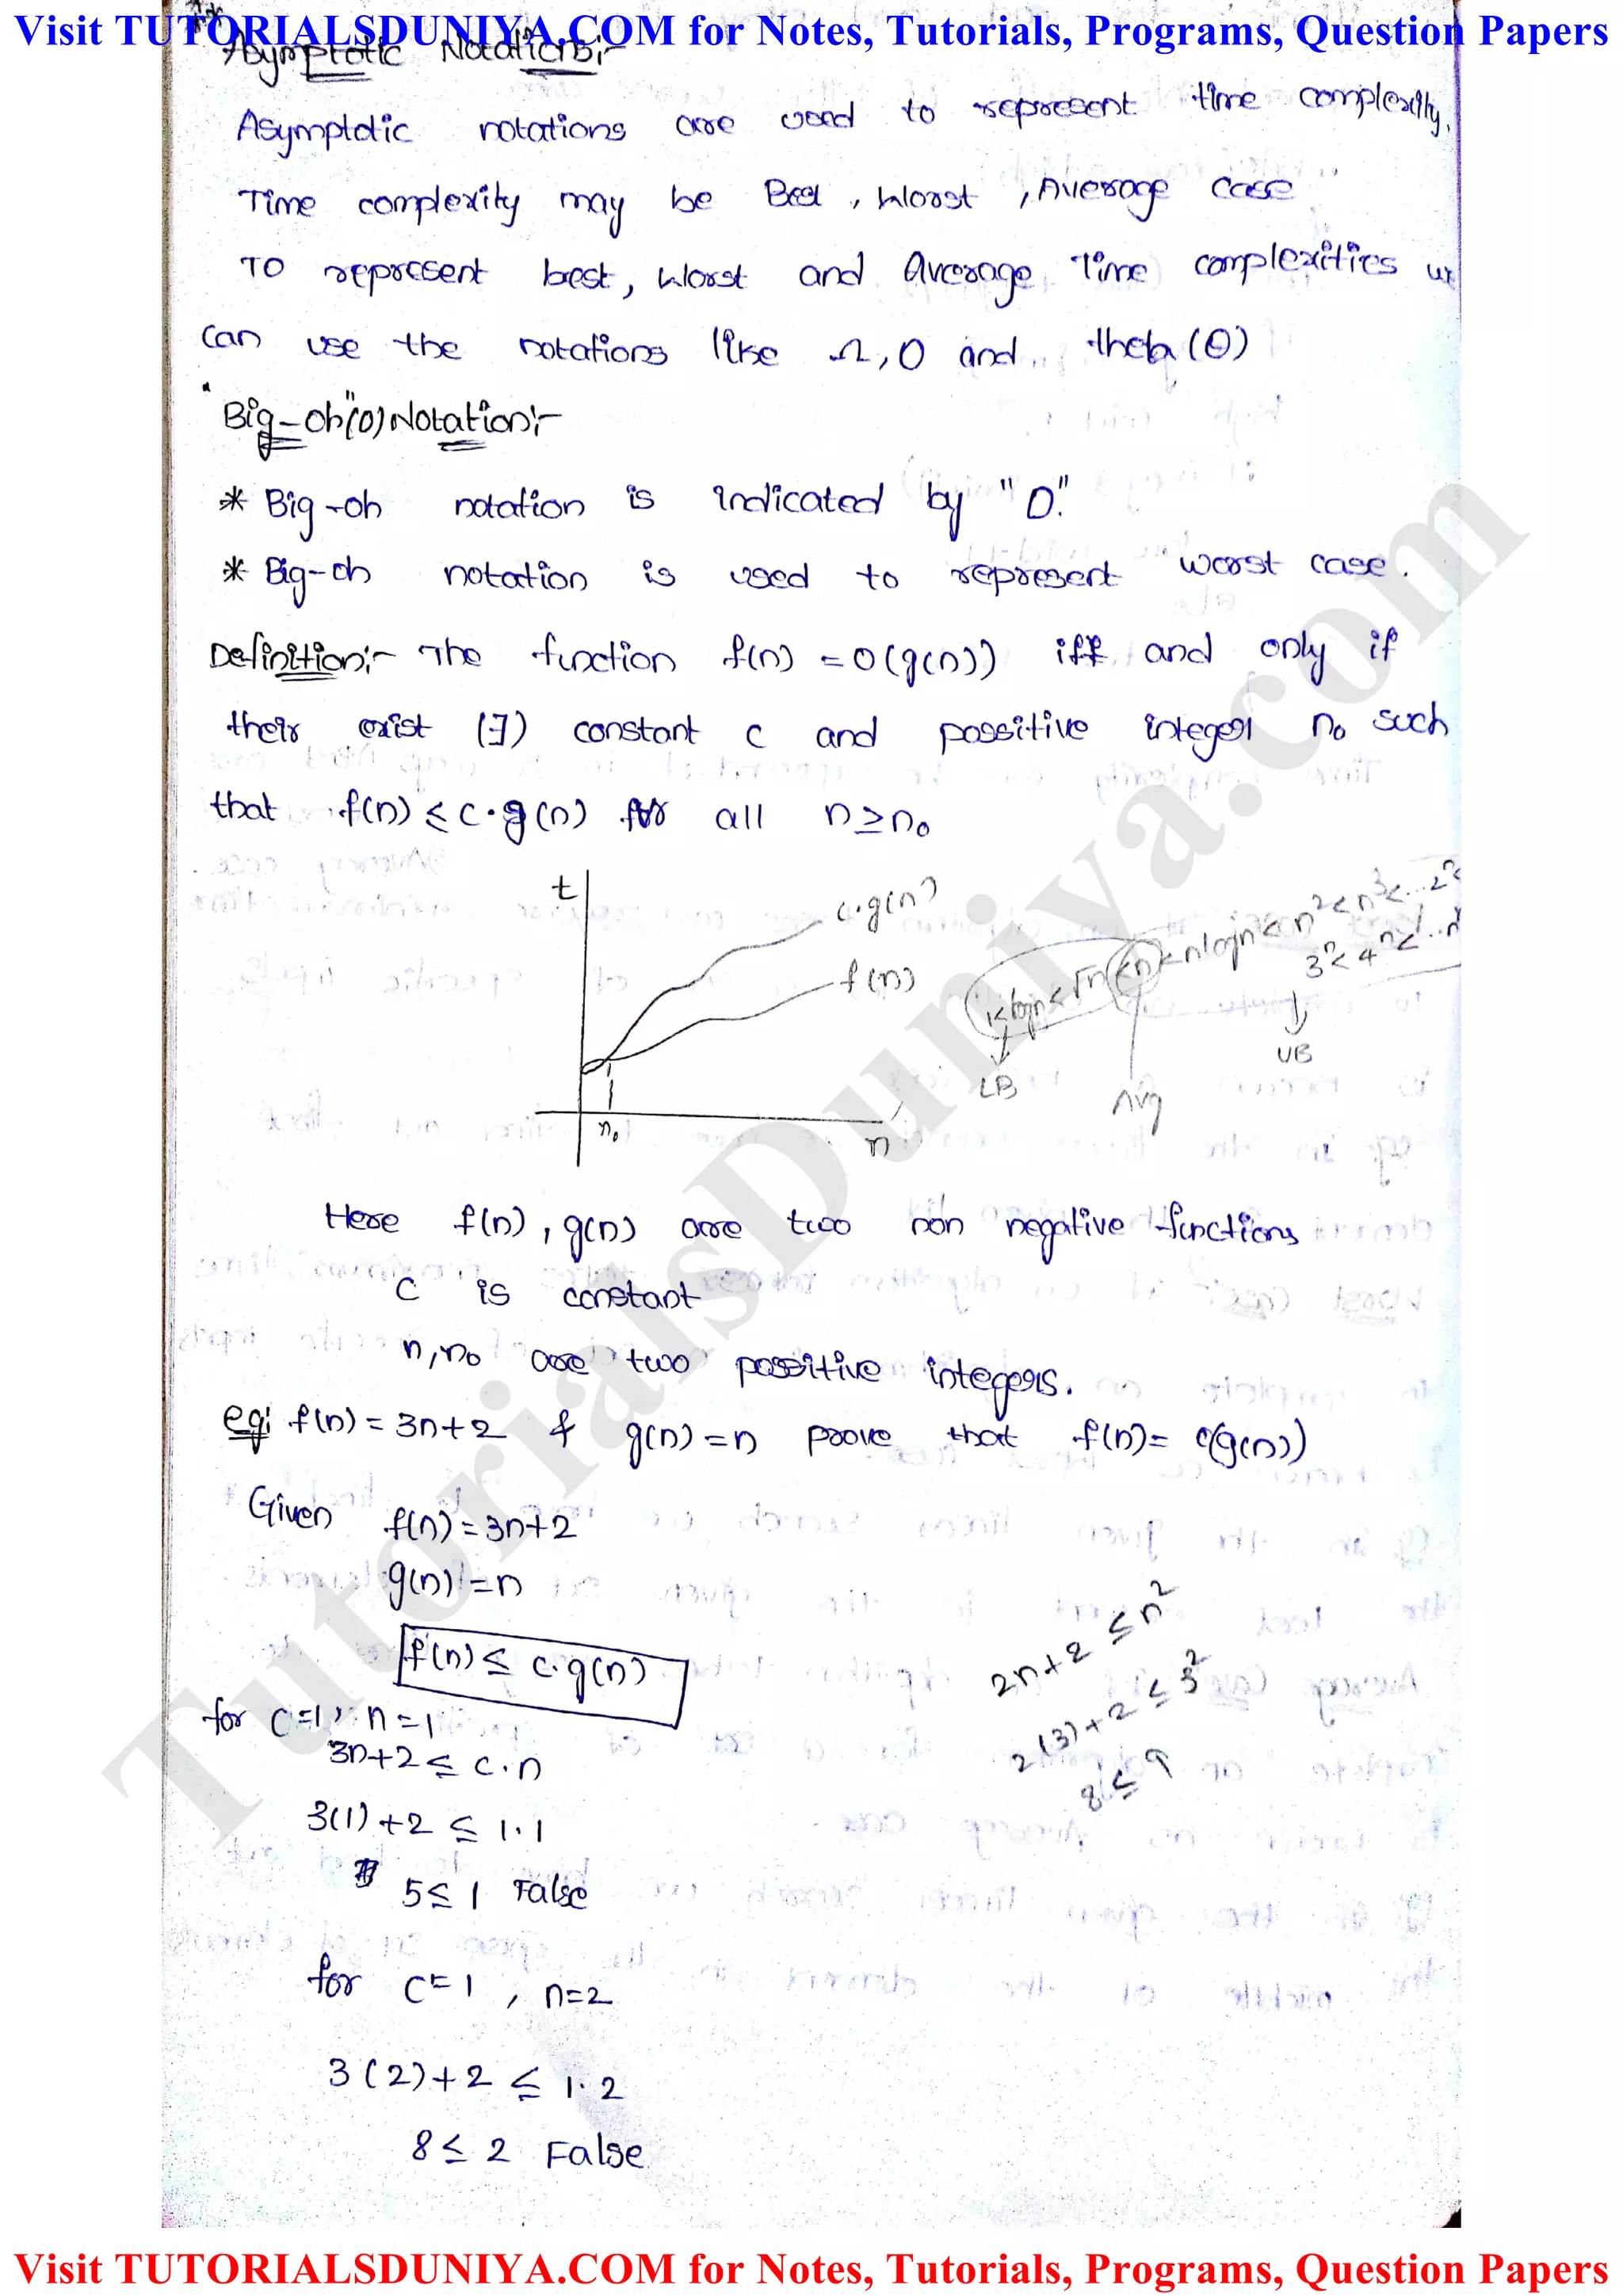 Visit TUTORIALSDUNIYA.COM for Notes, Tutorials, Programs, Question Papers
Asymptotic Notations:-
Asymptotic notations are used to represent time complexity.
Time complexity may be Best, Worst, Average case
To represent best, Worst and Average Time complexities we
can use the notations like Ω, O and theta (Θ)
"Big-oh"(O) Notation:-
* Big-oh notation is indicated by "O."
* Big-oh notation is used to represent worst case.
Definition:- The function f(n) = O(g(n)) iff and only if
their exist (∃) constant c and possitive integer n₀ such
that f(n) ≤ c·g(n) for all n ≥ n₀
t
c·g(n)
f(n)
n₀
n
1 < logn < √n < n < nlogn < n² < n³ < ... 2ⁿ <
3ⁿ < 4ⁿ < ... nⁿ
LB
Avg
UB
Here f(n), g(n) are two non negative functions
c is constant
n, n₀ are two possitive integers.
eg: f(n) = 3n+2 & g(n) = n prove that f(n) = O(g(n))
Given f(n) = 3n+2
g(n) = n
f(n) ≤ c·g(n)
for c=1, n=1
3n+2 ≤ c.n
3(1)+2 ≤ 1·1
5 ≤ 1 False
for c=1, n=2
3(2)+2 ≤ 1·2
8 ≤ 2 False
2n+2 ≤ n²
2(3)+2 ≤ 3²
8 ≤ 9
TutorialsDuniya.com
Visit TUTORIALSDUNIYA.COM for Notes, Tutorials, Programs, Question Papers